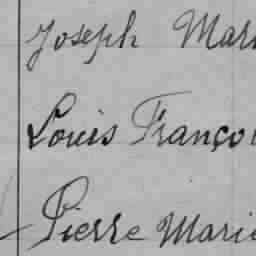 Joseph Mari
Louis Françoi
Pierre Marie